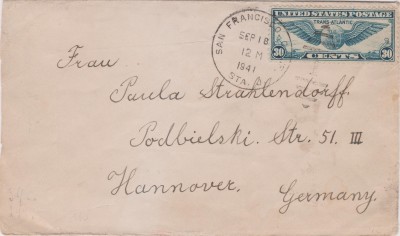 SAN FRANCISCO
SEP 18
12 M
1941
STA. A
UNITED STATES POSTAGE
TRANS-ATLANTIC
30 CENTS 30
Frau
Paula Strahlendorff
Podbielski. Str. 51. III
Hannover.
Germany.